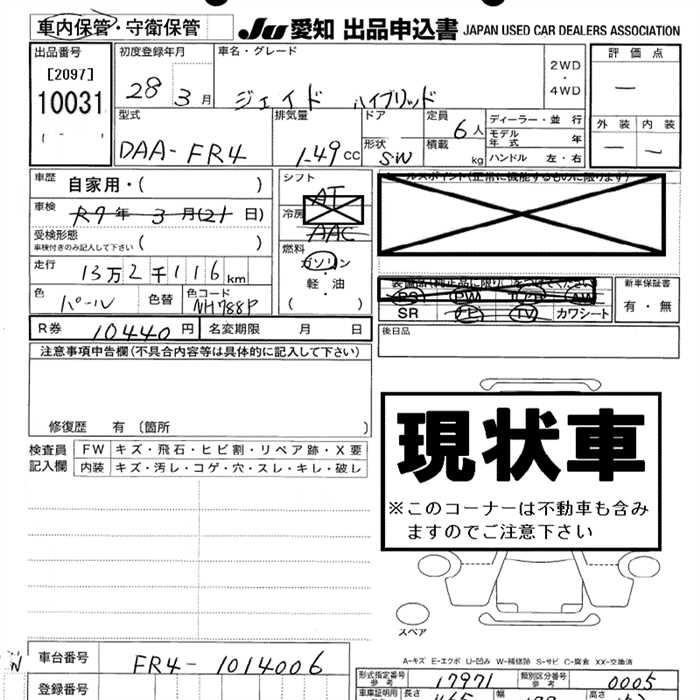 車内保管・守衛保管 JU 愛知 出品申込書 JAPAN USED CAR DEALERS ASSOCIATION
出品番号 初度登録年月 車名・グレード 評価点
[2097] 2WD・4WD
10031 28 3月 ジェイド ハイブリッド —
型式 排気量 ドア 定員 6人 ディーラー・並行 外装 内装
モデル年式 年
DAA-FR4 1.49cc 形状 S・W 積載 kg ハンドル 左・右 — —
車歴 自家用・( ) シフト AT
車検 R7年3月(21日) 冷房 AAC
受検形態 ( )
車検付きのみ記入して下さい
燃料
ガソリン・軽油
( )
走行 13万2千116km
色 パール 色替 色コード NH788P
セールスポイント(正常に機能するものに限ります)
装備品(純正品に限り○をつけてください) 新車保証書
PS PW AW 有・無
SR TV カワシート
R券 10440円 名変期限 月 日 後日品
注意事項申告欄(不具合内容等は具体的に記入して下さい)
修復歴 有 (箇所 )
検査員記入欄 FW キズ・飛石・ヒビ割・リペア跡・X要
内装 キズ・汚レ・コゲ・穴・スレ・キレ・破レ
現状車
※このコーナーは不動車も含み
ますのでご注意下さい
スペア
A-キズ E-エクボ U-凹み W-補修跡 S-サビ C-腐食 XX-交換済
車台番号 FR4-1014006 形式指定番号 参考 17971 類別区分番号 参考 0005
登録番号 車庫証明用 参考 長さ 幅 高さ